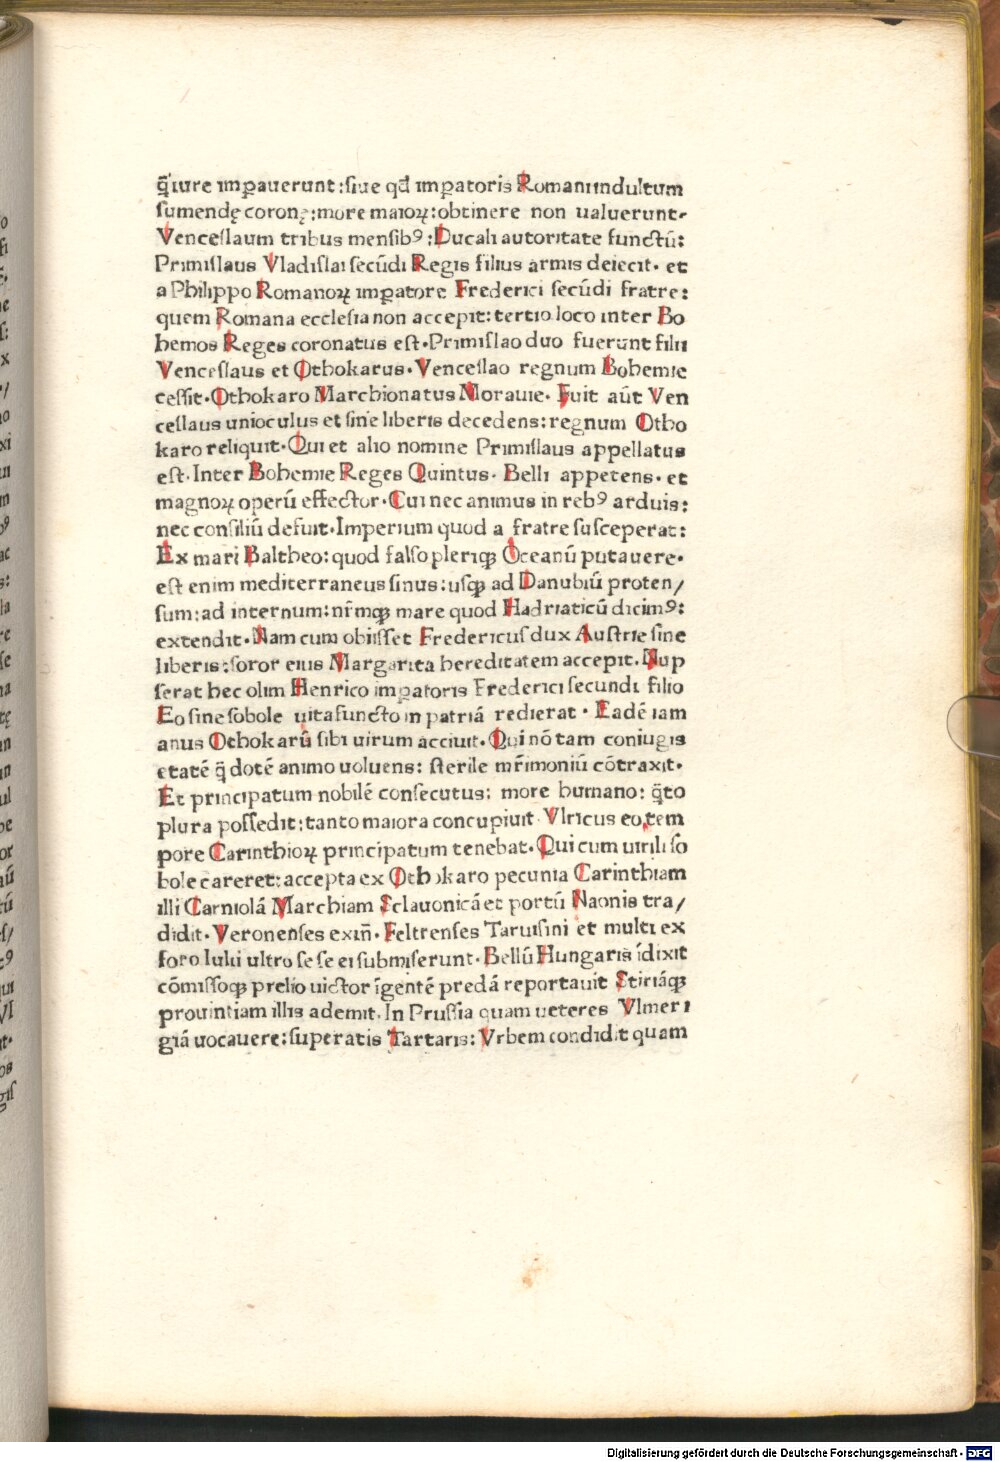 q̄ iure imꝑauerunt: siue qd̄ imꝑatoris Romani indultum
sumendę coronę: more maioꝝ: obtinere non ualuerunt⸗
Venceslaum tribus mensibꝰ: Ducali autoritate functū:
Primislaus Vladislai secūdi Regis filius armis deiecit. et
a Philippo Romanoꝝ imꝑatore Frederici secūdi fratre:
quem Romana ecclesia non accepit: tertio loco inter Bo
hemos Reges coronatus est. Primislao duo fuerunt filii
Venceslaus et Othokarus. Venceslao regnum Bohemie
cessit. Othokaro Marchionatus Morauie. Fuit aūt Ven
ceslaus unioculus et sine liberis decedens: regnum Otho
karo reliquit. Qui et alio nomine Primislaus appellatus
est. Inter Bohemie Reges Quintus. Belli appetens. et
magnoꝝ operū effector. Cui nec animus in rebꝰ arduis:
nec consiliū defuit. Imperium quod a fratre susceperat:
Ex mari Baltheo: quod falso pleriqꝫ Oceanū putauere.
est enim mediterraneus sinus: usqꝫ ad Danubiū proten/
sum: ad internum: nr̄mqꝫ mare quod Hadriaticū dicimꝰ:
extendit. Nam cum obiisset Fredericus dux Austrie sine
liberis: soror eius Margarita hereditatem accepit. Nup
serat hec olim Henrico imꝑatoris Frederici secundi filio
Eo sine sobole uita functo in patriā redierat. Eadē iam
anus Othokarū sibi uirum acciuit. Qui nō tam coniugis
etatē q̄ dotē animo uoluens: sterile mr̄imoniū cōtraxit.
Et principatum nobilē consecutus: more humano: q̄to
plura possedit: tanto maiora concupiuit Vlricus eo tem
pore Carinthioꝝ principatum tenebat. Qui cum uirili so
bole careret: accepta ex Othokaro pecunia Carinthiam
illi Carniolā Marchiam Sclauonicā et portū Naonis tra/
didit. Veronenses exin̄. Feltrenses Taruisini et multi ex
foro Iulii ultro se se ei submiserunt. Bellū Hungaris īdixit
cōmissoqꝫ prelio uictor īgentē predā reportauit Stiriāqꝫ
prouintiam illis ademit. In Prussia quam ueteres Vlmeri
giā uocauere: superatis Tartaris: Vrbem condidit quam
Digitalisierung gefördert durch die Deutsche Forschungsgemeinschaft - DFG